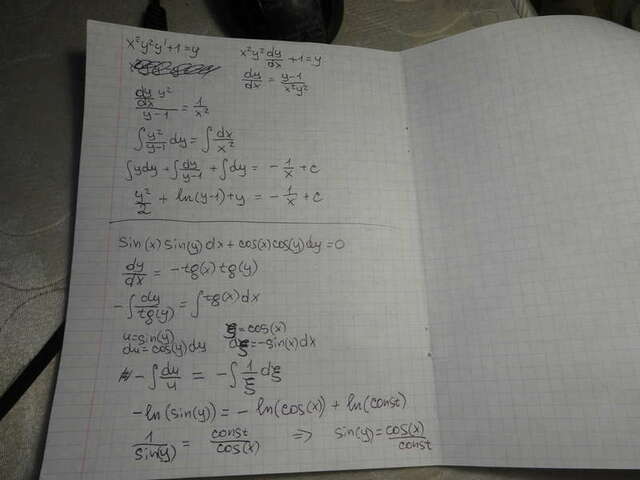 x²y²y'+1=y
x²y² dy/dx +1=y
dy/dx = (y-1)/(x²y²)
(dy/dx y²)/(y-1) = 1/x²
∫ y²/(y-1) dy = ∫ dx/x²
∫ydy + ∫ dy/(y-1) + ∫dy = - 1/x + c
y²/2 + ln(y-1)+y = - 1/x + c
sin(x)sin(y)dx+cos(x)cos(y)dy=0
dy/dx = -tg(x)tg(y)
-∫ dy/tg(y) = ∫tg(x)dx
u=sin(y)
du=cos(y)dy
ξ=cos(x)
dξ=-sin(x)dx
-∫ du/u = -∫ 1/ξ dξ
-ln(sin(y)) = - ln(cos(x)) + ln(const)
1/sin(y) = const/cos(x) => sin(y)= cos(x)/const